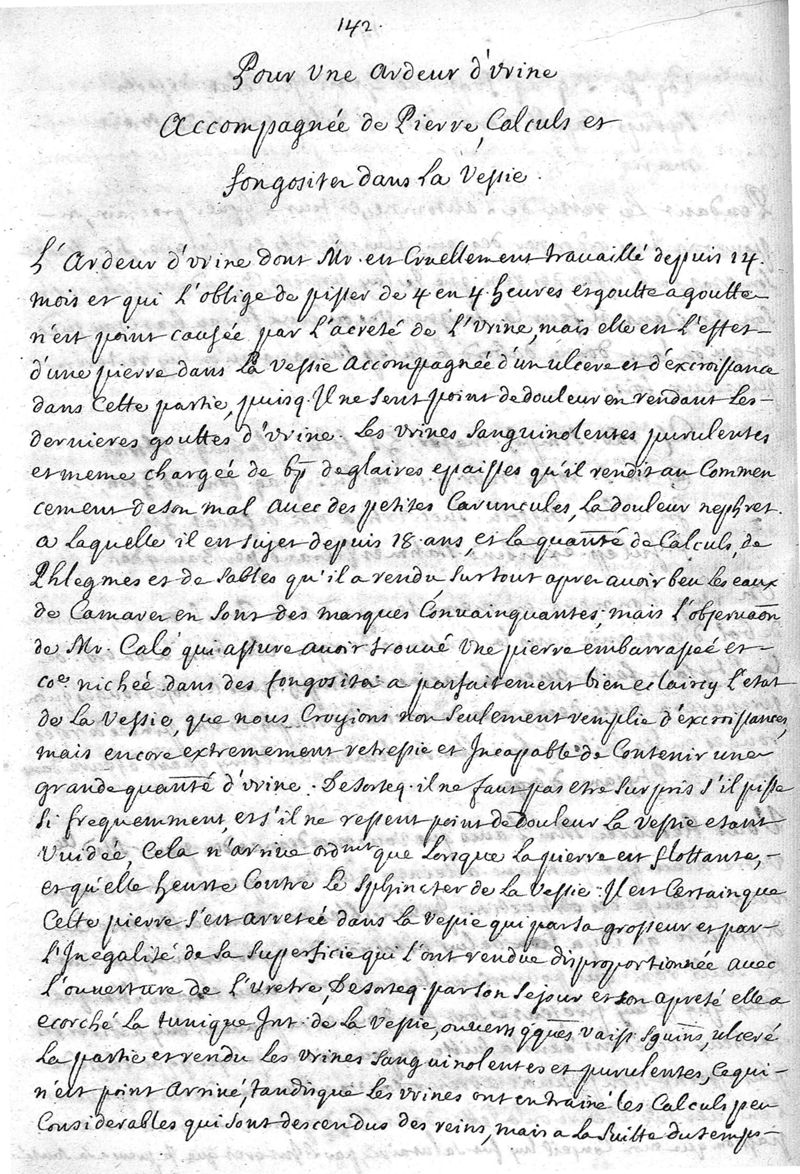 142.
Pour Une Ardeur d'Urine
Accompagnée de Pierre, Calculs et
fongositez dans La Vessie.
L'Ardeur d'Urine dont Mr. est Cruellement travaillé depuis 14.
mois et qui L'oblige de pisser de 4 en 4. heures et goutte a goutte
n'est point causée par L'acreté de L'Urine, mais elle est L'effet
d'une pierre dans La Vessie Accompagnée d'un ulcere et d'excroissance
dans Cette partie, puisq. Il ne sent point de douleur en rendant Les
dernieres gouttes d'Urine. Les Urines Sanguinolentes purulentes
et meme chargée de bp de glaires epaisses qu'il rendit au Commen
cement de son mal avec des petites Caruncules, La douleur nephret.
a Laquelle il est Sujet depuis 18. ans, et La quantté de Calculs, de
Phlegmes et de Sables qu'il a rendu Surtout aprez avoir beu Les eaux
de Camarez en Sont des marques Convainquantes; mais L'observaon
de Mr. Calo qui assure avoir trouvé Une pierre embarrassée et
coe. nichée dans des fongositez a parfaitement bien eclaircy L'etat
de La Vessie, que nous Croyions non Seulement remplie d'excroissances,
mais encore extremement retressie et Incapable de Contenir une
grande quantté d'Urine. De Sorteq. il ne faut pas etre Surpris S'il pisse
Si frequemment, et s'il ne ressent point de Douleur La Vessie etant
Vuidée, Cela n'arrive ordnrt que Lorsque La pierre est flottante,
et qu'elle heurte Contre Le Sphincter de La Vessie: Il est Certain que
Cette pierre S'est arretée dans La Vessie qui par sa grosseur et par
L'Inegalité de Sa Superficie qui L'ont rendue disproportionnée avec
L'ouverture de L'Uretre, De Sorteq. par Son Sejour et Son apreté elle a
ecorché La tunique Int. de La Vessie, ouverts qques vaiss. Sguins, ulceré
La partie et rendu Les Urines Sanguinolentes et purulentes, Ce qui
n'est point Arrivé, tandisque Les Urines ont entrainé Les Calculs peu
Considerables qui Sont descendus des reins, mais a La Suitte du temps